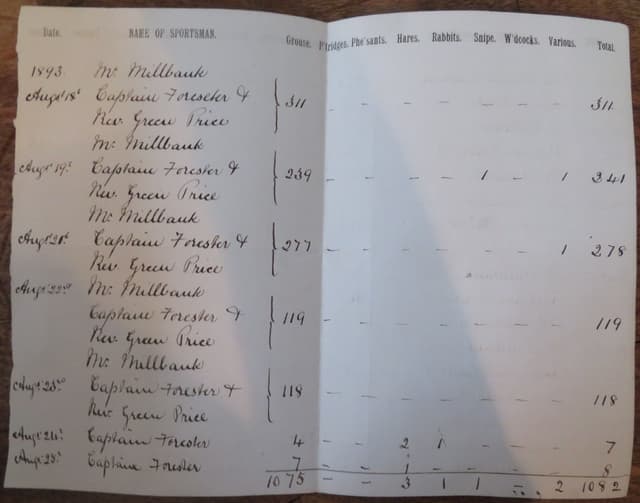 Date. NAME OF SPORTSMAN. Grouse. P'tridges. Phe'sants. Hares. Rabbits. Snipe. W'dcocks. Various. Total.
1893 Mr Millbank
Augst 18th Captain Foreseter & 311 – – – – – – – 311
Rev. Green Price
Mr Millbank
Augst 19th Captain Forester & 239 – – – – 1 – 1 241
Rev. Green Price
Mr Millbank
Augst 21st Captain Forester & 277 – – – – – – 1 278
Rev. Green Price
Augst 22nd Mr Millbank
Captain Forester & 119 – – – – – – – 119
Rev. Green Price
Mr Millbank
Augst 23rd Captain Forester & 118 – – – – – – – 118
Rev Green Price
Augst 24th Captain Forester 4 – – 2 1 – – – 7
Captain Forester 7 – – 1 – – – – 8
1075 – – 3 1 1 – 2 1082